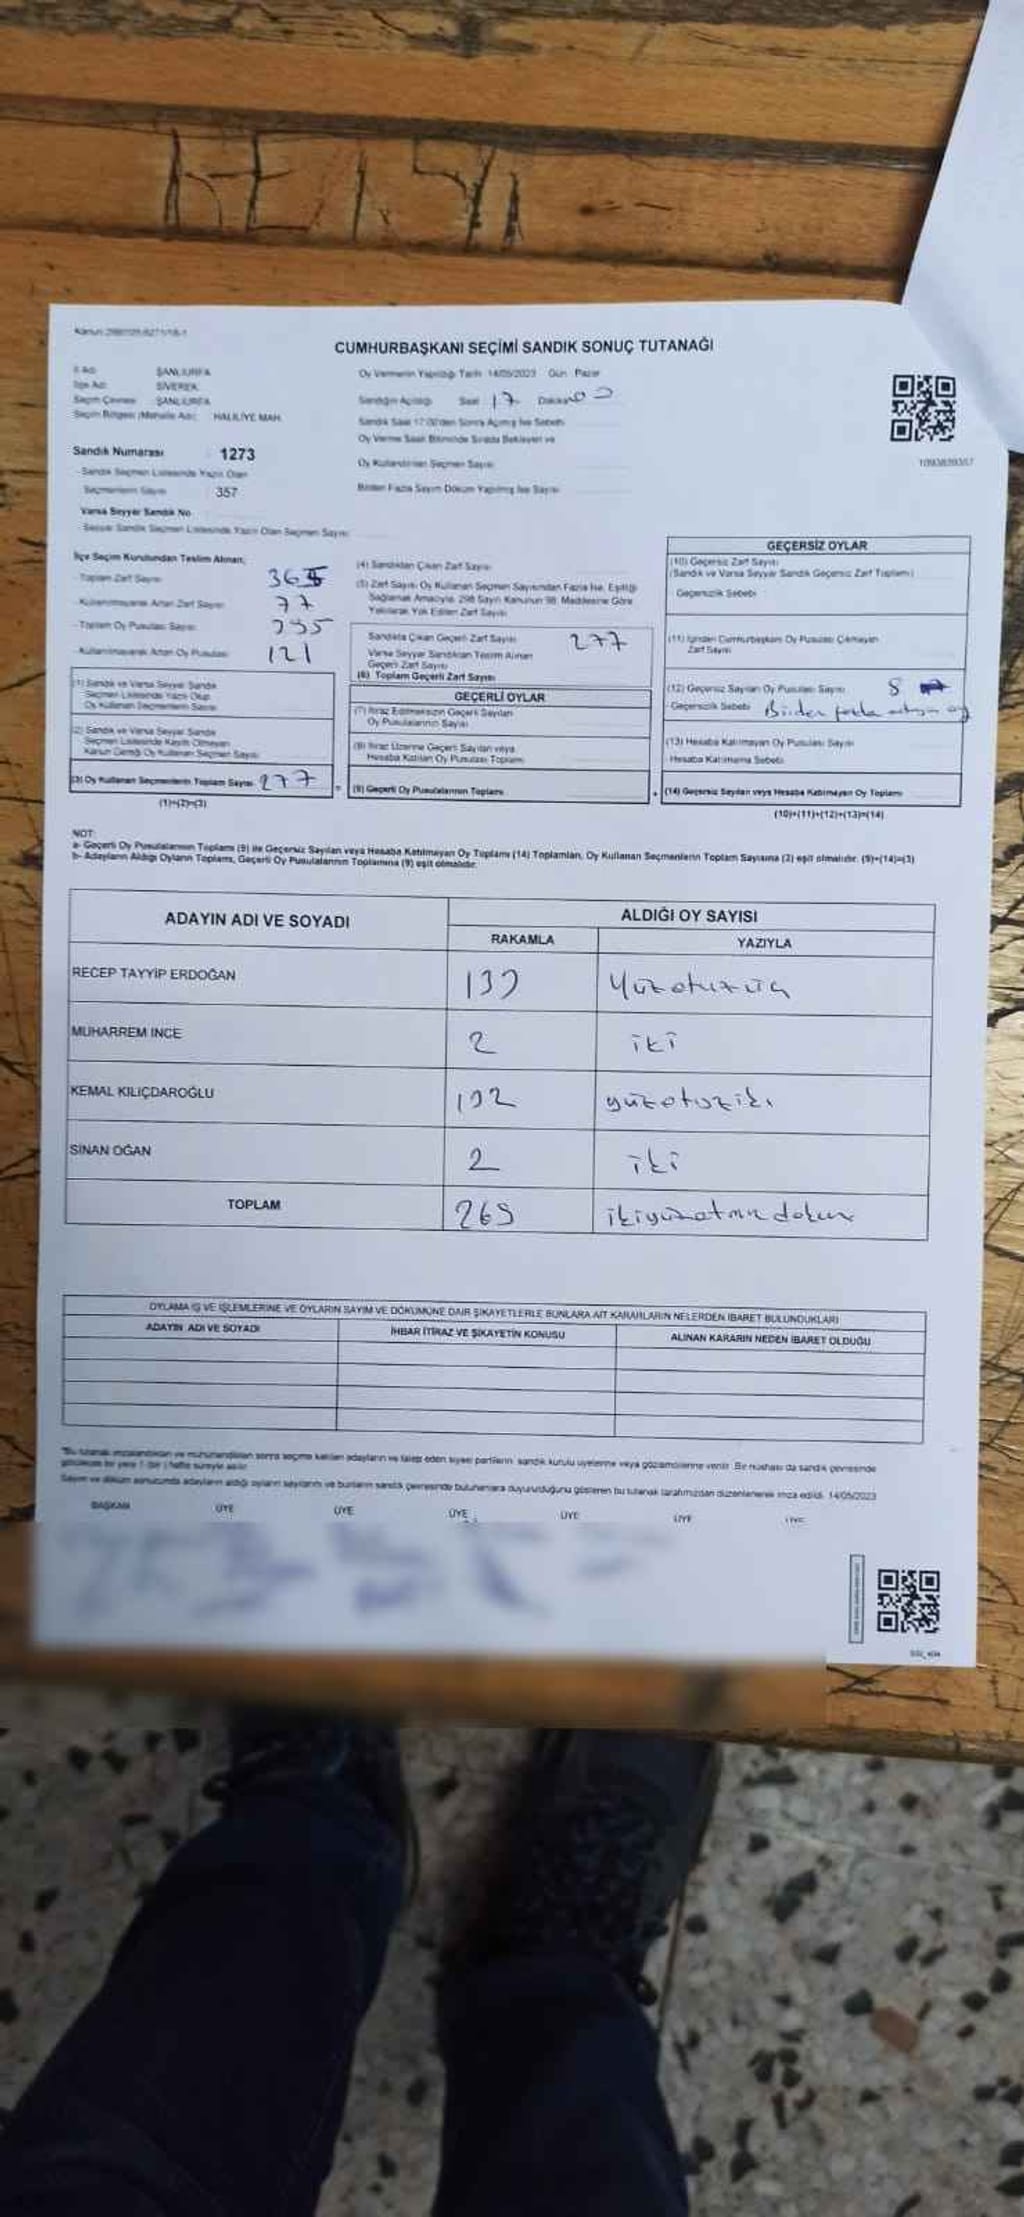 CUMHURBAŞKANI SEÇİMİ SANDIK SONUÇ TUTANAĞI
İl Adı: ŞANLIURFA
İlçe Adı: SİVEREK
Seçim Çevresi: ŞANLIURFA
Seçim Bölgesi (Mahalle Adı): HALİLİYE MAH.
Oy Vermenin Yapıldığı Tarih: 14/05/2023 Gün: Pazar
Sandığın Açıldığı Saat 17 Dakika
Sandık Saat 17:00'den Sonra Açılmış İse Sebebi
Oy Verme Saati Bitiminde Sırada Bekleyen ve
Oy Kullandırılan Seçmen Sayısı
Birden Fazla Sayım Döküm Yapılmış İse Sayısı
Sandık Numarası 1273
- Sandık Seçmen Listesinde Yazılı Olan
Seçmenlerin Sayısı 357
Varsa Seyyar Sandık No
- Seyyar Sandık Seçmen Listesinde Yazılı Olan Seçmen Sayısı
İlçe Seçim Kurulundan Teslim Alınan;
- Toplam Zarf Sayısı
- Kullanılmayarak Artan Zarf Sayısı 77
- Toplam Oy Pusulası Sayısı
- Kullanılmayarak Artan Oy Pusulası 121
(1) Sandık ve Varsa Seyyar Sandık
Seçmen Listesinde Yazılı Olup
Oy Kullanan Seçmenlerin Sayısı
(2) Sandık ve Varsa Seyyar Sandık
Seçmen Listesinde Kayıtlı Olmayan
Kanun Gereği Oy Kullanan Seçmen Sayısı
(3) Oy Kullanan Seçmenlerin Toplam Sayısı 277
(1)+(2)=(3)
(4) Sandıktan Çıkan Zarf Sayısı
(5) Zarf Sayısı Oy Kullanan Seçmen Sayısından Fazla İse, Eşitliği
Sağlamak Amacıyla, 298 Sayılı Kanunun 98. Maddesine Göre
Yakılarak Yok Edilen Zarf Sayısı
Sandıkta Çıkan Geçerli Zarf Sayısı 277
Varsa Seyyar Sandıktan Teslim Alınan
Geçerli Zarf Sayısı
(6) Toplam Geçerli Zarf Sayısı
GEÇERLİ OYLAR
(7) İtiraz Edilmeksizin Geçerli Sayılan
Oy Pusulalarının Sayısı
(8) İtiraz Üzerine Geçerli Sayılan veya
Hesaba Katılan Oy Pusulası Toplamı
(9) Geçerli Oy Pusulalarının Toplamı
GEÇERSİZ OYLAR
(10) Geçersiz Zarf Sayısı
(Sandık ve Varsa Seyyar Sandık Geçersiz Zarf Toplamı)
- Geçersizlik Sebebi
(11) İçinden Cumhurbaşkanı Oy Pusulası Çıkmayan
Zarf Sayısı
(12) Geçersiz Sayılan Oy Pusulası Sayısı 8
- Geçersizlik Sebebi Birden fazla oy
(13) Hesaba Katılmayan Oy Pusulası Sayısı
- Hesaba Katılmama Sebebi
(14) Geçersiz Sayılan veya Hesaba Katılmayan Oy Toplamı
(10)+(11)+(12)+(13)=(14)
NOT:
a- Geçerli Oy Pusulalarının Toplamı (9) ile Geçersiz Sayılan veya Hesaba Katılmayan Oy Toplamı (14) Toplamları, Oy Kullanan Seçmenlerin Toplam Sayısına (3) eşit olmalıdır. (9)+(14)=(3)
b- Adayların Aldığı Oyların Toplamı, Geçerli Oy Pusulalarının Toplamına (9) eşit olmalıdır.
ADAYIN ADI VE SOYADI ALDIĞI OY SAYISI
RAKAMLA YAZIYLA
RECEP TAYYİP ERDOĞAN 133 yüzotuzüç
MUHARREM İNCE 2 iki
KEMAL KILIÇDAROĞLU 132 yüzotuziki
SİNAN OĞAN 2 iki
TOPLAM 269 ikiyüzatmışdokuz
OYLAMA İŞ VE İŞLEMLERİNE VE OYLARIN SAYIM VE DÖKÜMÜNE DAİR ŞİKAYETLERLE BUNLARA AİT KARARLARIN NELERDEN İBARET BULUNDUKLARI
ADAYIN ADI VE SOYADI İHBAR İTİRAZ VE ŞİKAYETİN KONUSU ALINAN KARARIN NEDEN İBARET OLDUĞU
"Bu tutanak imzalandıktan ve mühürlendikten sonra seçime katılan adayların ve talep eden siyasi partilerin sandık kurulu üyelerine veya gözlemcilerine verilir. Bir nüshası da sandık çevresinde
görülecek bir yere 1 (bir) hafta süreyle asılır.
Sayım ve döküm sonucunda adayların aldığı oyların sayılarını ve bunların sandık çevresinde bulunanlara duyurulduğunu gösteren bu tutanak tarafımızdan düzenlenerek imza edildi. 14/05/2023
BAŞKAN ÜYE ÜYE ÜYE ÜYE ÜYE ÜYE